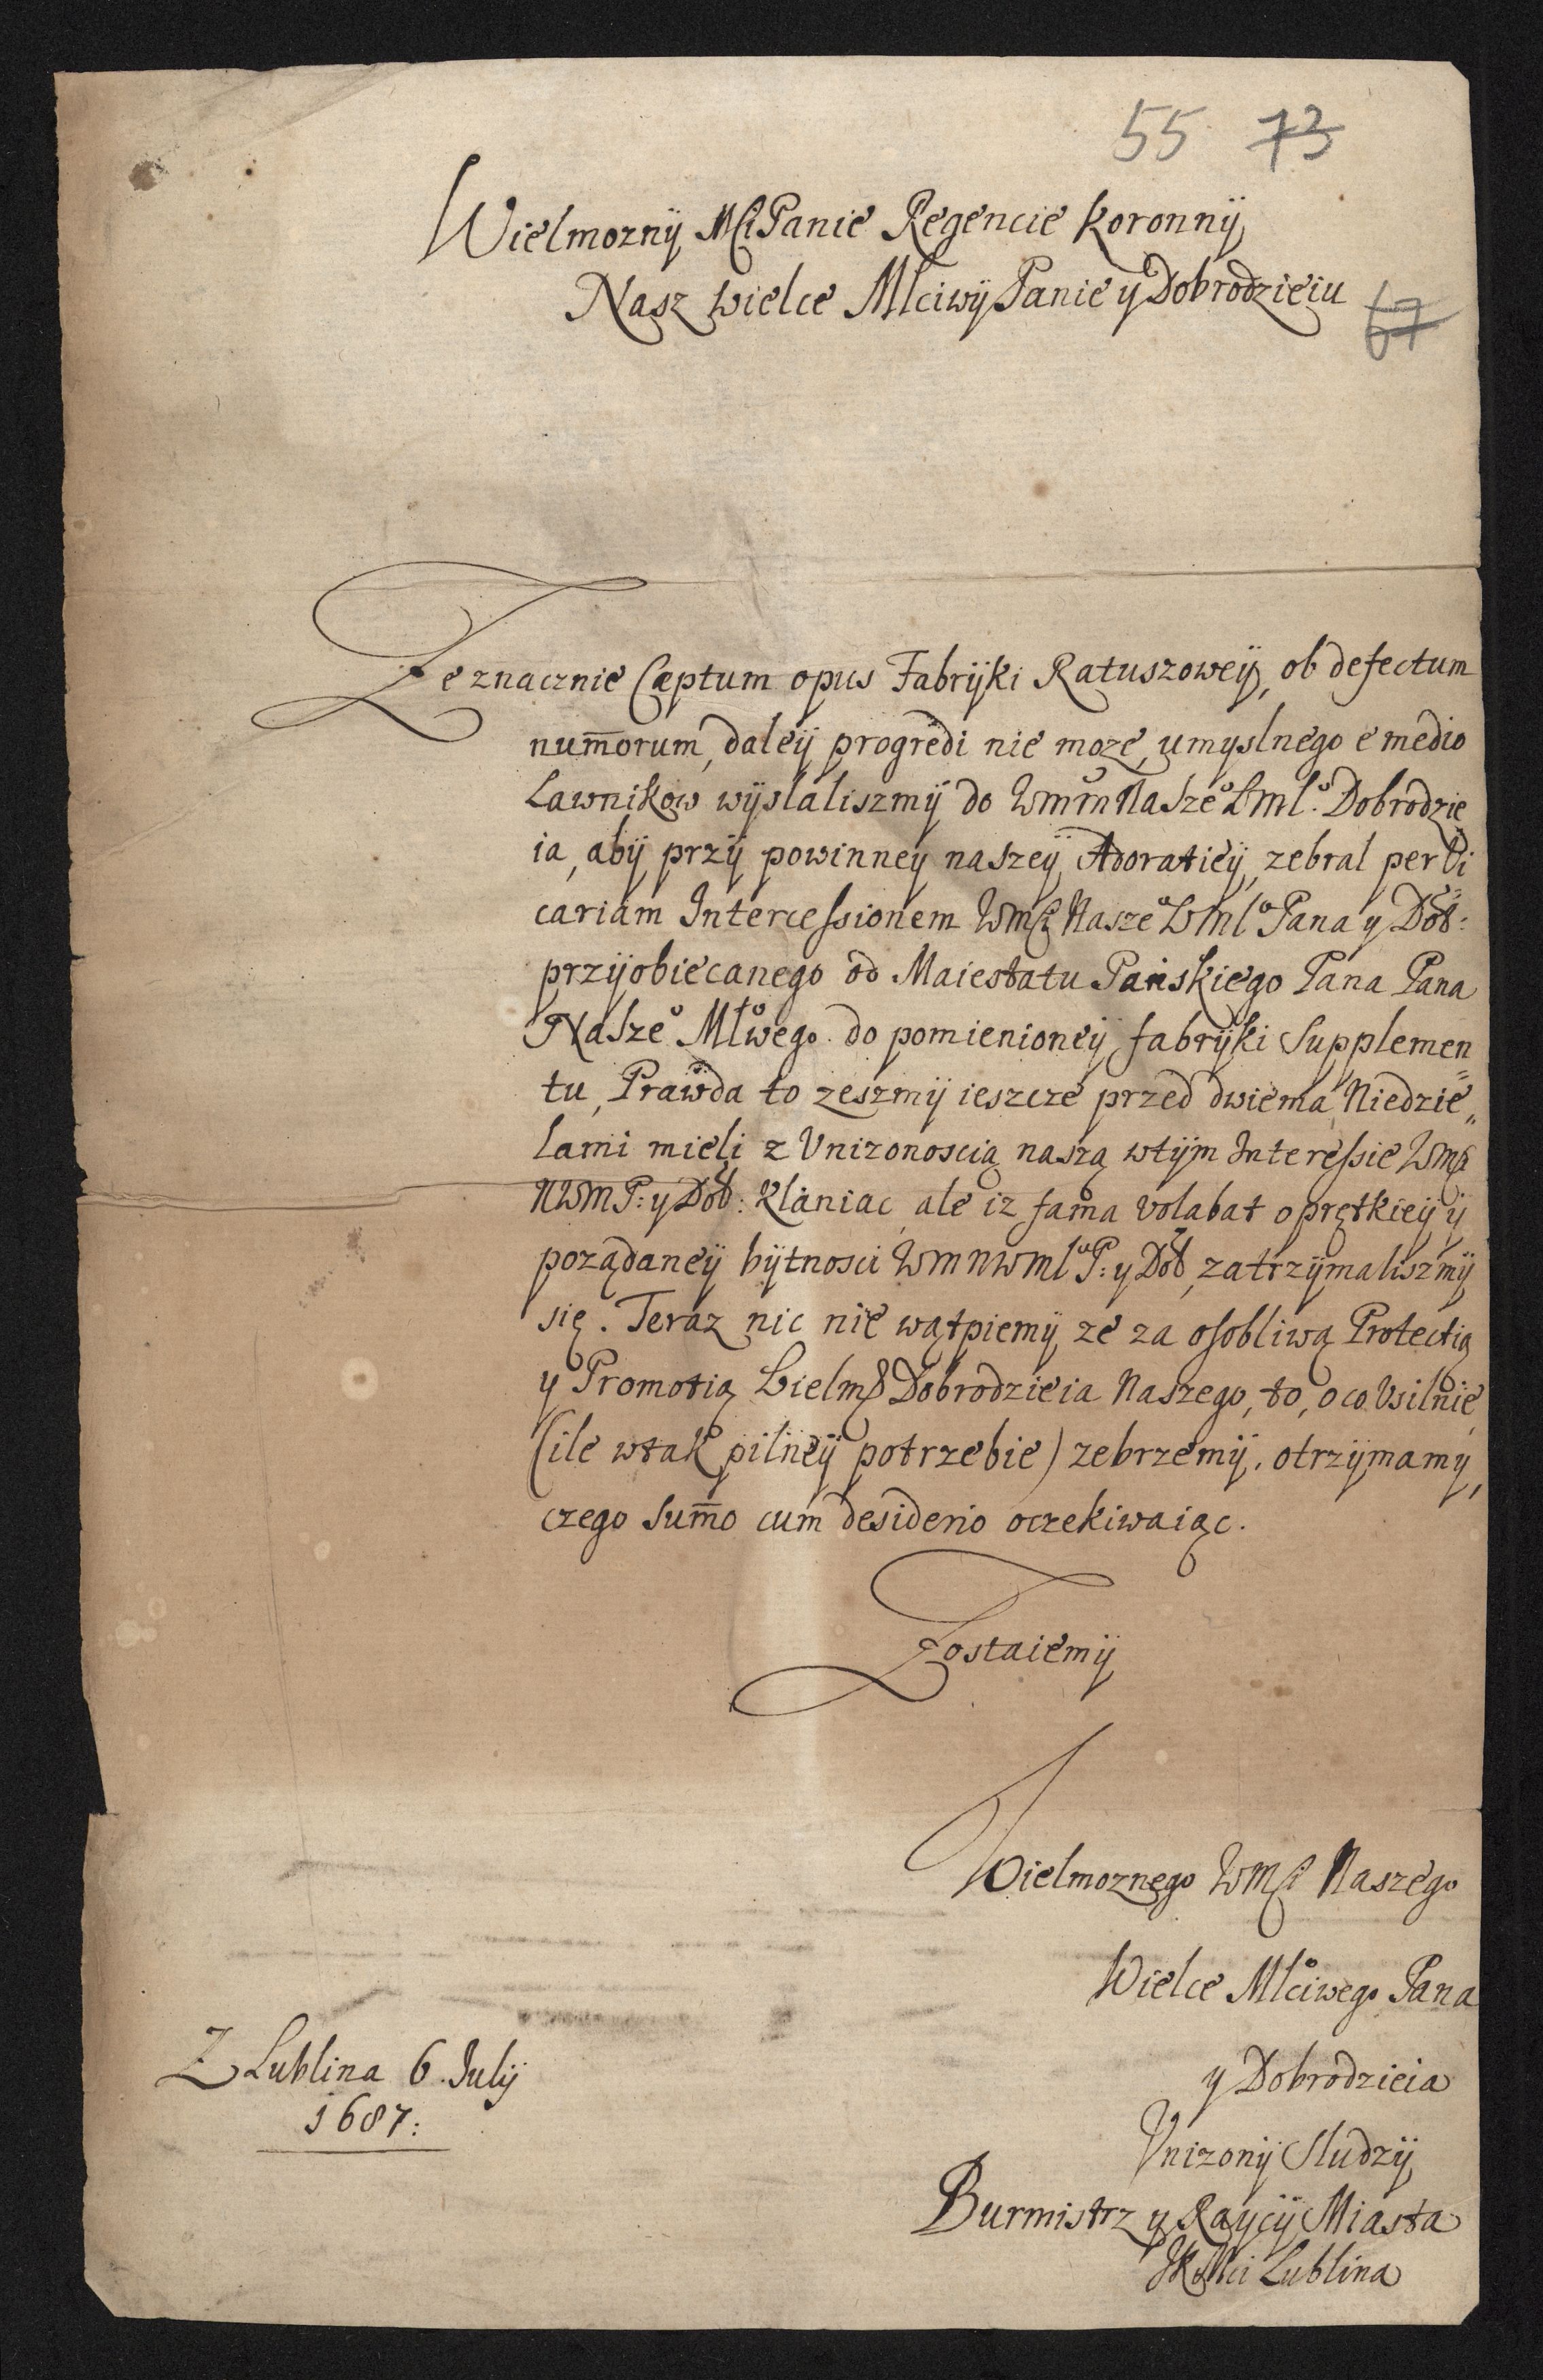 55 73
Wielmozny MPanie Regencie Koronny
Nasz wielce Mlciwy Panie y Dobrodzieiu
67
Ze znacznie Cæptum opus Fabryki Ratuszowey, ob defectum
num̄orum, daley progredi nie moze, umyslnego e medio
Lawnikow wyslaliszmy do Nasze° Dobrodzie
ia, aby przy powinney naszey Adoratiey, zebral per Vi
cariam Intercessionem Nasze° Pana y Dob:
przyobiecanego od Maiestatu Pańskiego Pana Pana
Nasze° Młwego do pomienioney fabryki Supplemen
tu, Prawda to zeszmy ieszcze przed dwiema Niedzie„
lami mieli z Vnizonoscią naszą wtym Interessie
NWMP: y Dob: Kłaniac, ale iz fama volabat o prętkiey y
porządaney bytnosci WMNWMl° P: y Dob, zatrzymaliszmy
się. Teraz nic nie wątpiemy ze za osobliwą Protectią
y Promotią Dobrodzieia Naszego, to, o co Vsilnie
(ile wtak pilney potrzebie) zebrzemy, otrzymamy,
czego sum̄o cum desiderio oczekiwaiąc.
Zostaiemy
Wielmoznego Naszego
Wielce Mlciwego Pana
y Dobrodzieia
Vnizony Sludzy
Burmistrz y Raycy Miasta
JKMci Lublina
Z Lublina 6. July
1687: